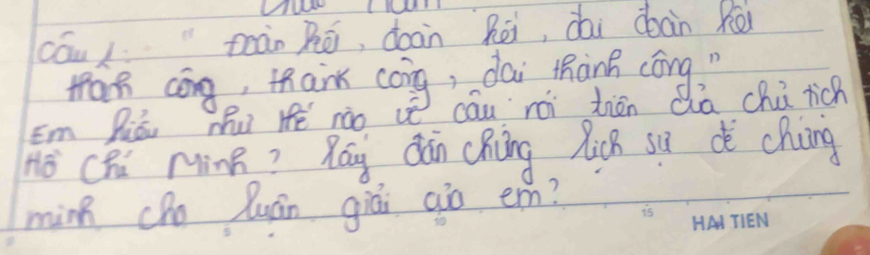 câu 1: "đoàn kết, đoàn kết, đại đoàn kết
thành công, thành công, đại thành công"
Em hiểu như thế nào về câu nói trên của chủ tịch
Hồ Chí Minh? lấy dẫn chứng lịch sử để chứng
minh cho luận giải của em?
5 10 15 HẢI TIẾN